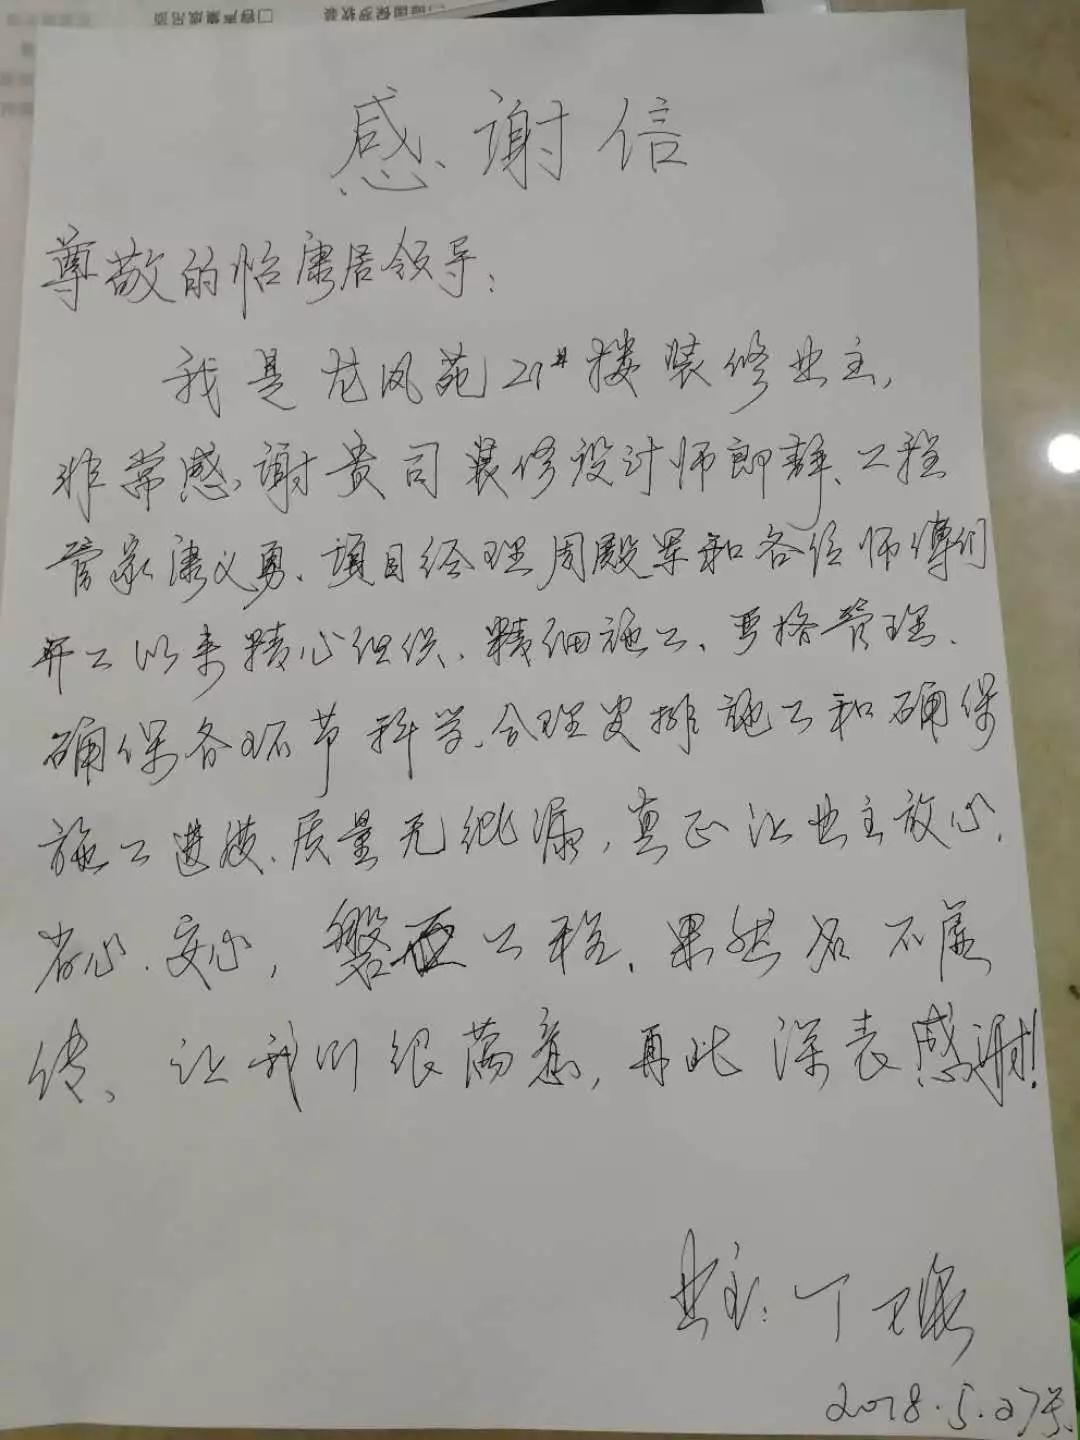 □容声集成吊顶 □德国保罗软装
感谢信
尊敬的怡康居领导:
我是龙凤苑21#楼装修业主,
非常感谢贵司装修设计师郎群、工程
管家唐义勇、项目经理周殿军和各位师傅们
开工以来精心组织、精细施工、严格管理、
确保各环节科学、合理安排施工和确保
施工进度、质量无纰漏,真正让业主放心、
省心、安心, 磐石工程、果然名不虚
传、让我们很满意,再此深表感谢!
业主:丁卫
2018.5.27